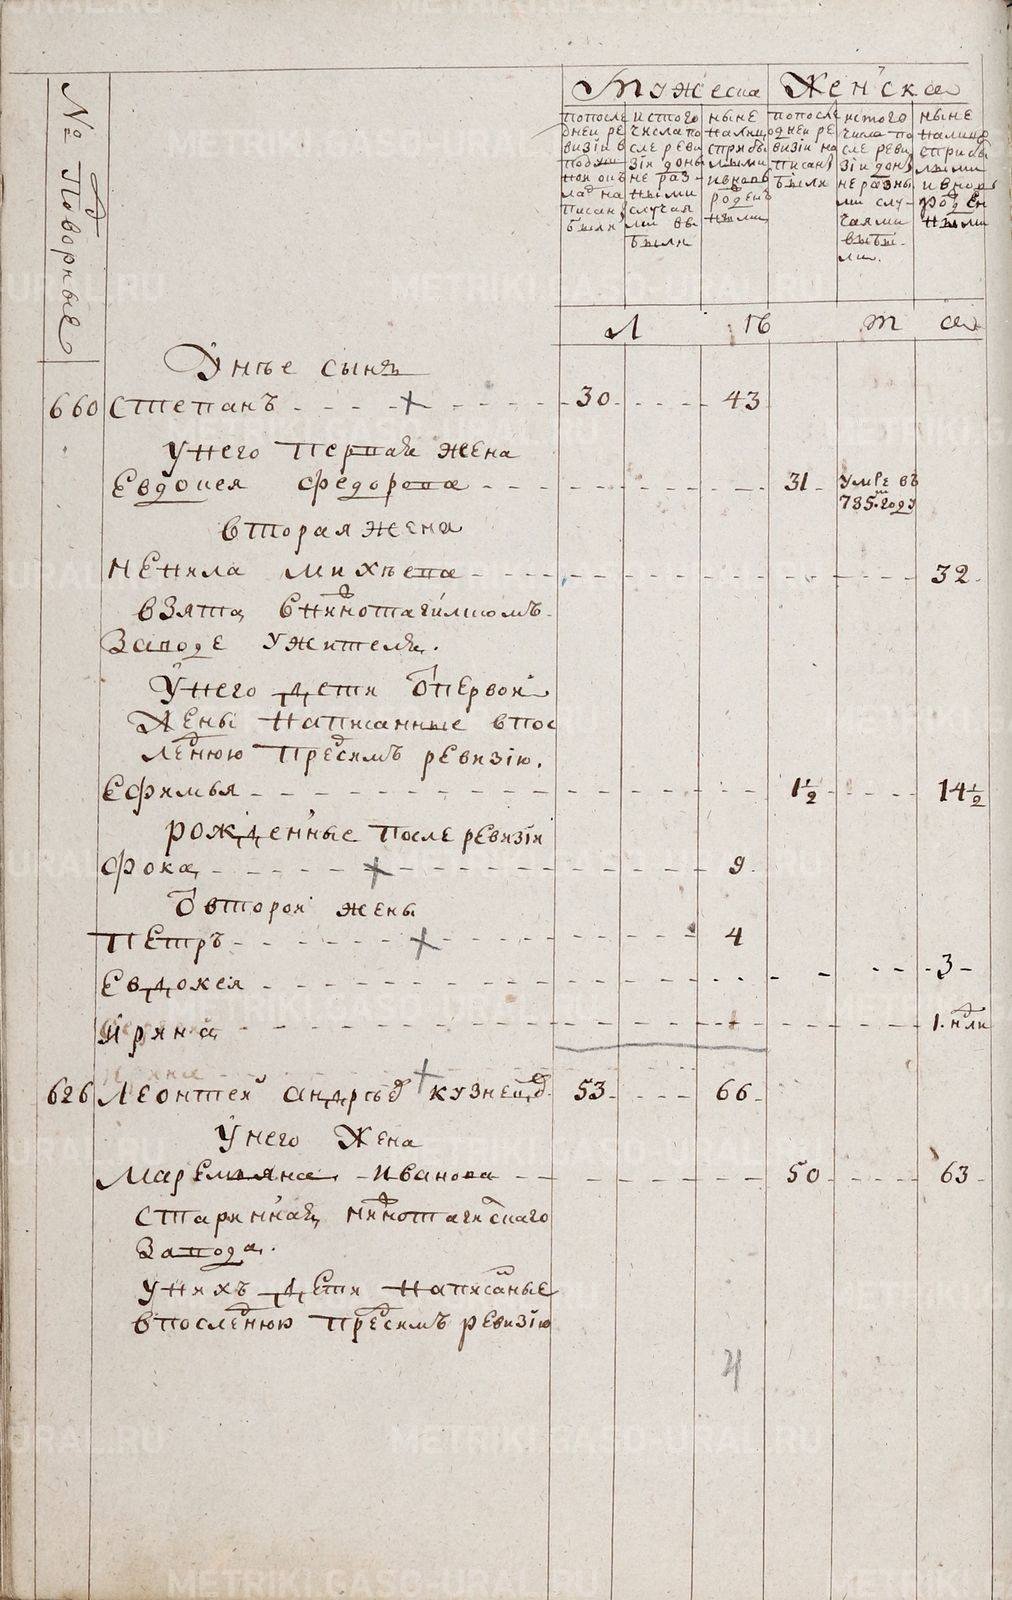 № Подворные
Мужеска
Женска
по после
дней ре
визіи в
подуш
ной окъ
лад на
писаны
были
ис того
числа по
сле реви
зіи до ны
не раз-
ными
случая
ми вы
были
ныне
налицо
с прибы
лыми
и вновь
рожден
ными
по после
дней ре
визіи на
писаны
были
ис того
числа по
сле реви
зіи до ны
не разны
ми слу-
чаями
выбы-
ли.
ныне
налицо
с прибы
лыми
и вновь
рожден
ными
Л ѣ т а
У нее сынъ
660 Степанъ 30 43
у него первая жена
Евдокея Федорова 31 умре въ
785. году
вторая жена
Ненила Михѣева 32
взята в нижнотагилскомъ
заводе у жителя.
У него дети от первой
жены написанные в пос
леднюю пред симъ ревизію.
Ефимья 1½ 14½
рожденные после ревизіи
Фока 9
От второй жены
Петръ 4
Евдокея 3
Ирина 1. нѣли
626 Леонтей Андрѣев Кузнецов 53 66
У него жена
Маремьяна Иванова 50 63
старинная нижнотагилскаго
завода.
у нихъ дети написаные
в последнюю пред симъ ревизію
METRIKI.GASO-URAL.RU